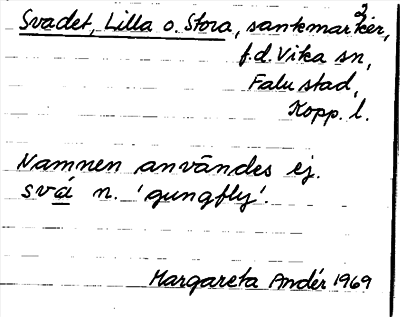 Svadet, Lilla o. Stora, sankmarker,
2
f.d. Vika sn,
Falu stad,
Kopp. l.
Namnen användes ej.
svá n. 'gungfly'.
Margareta Andér 1969